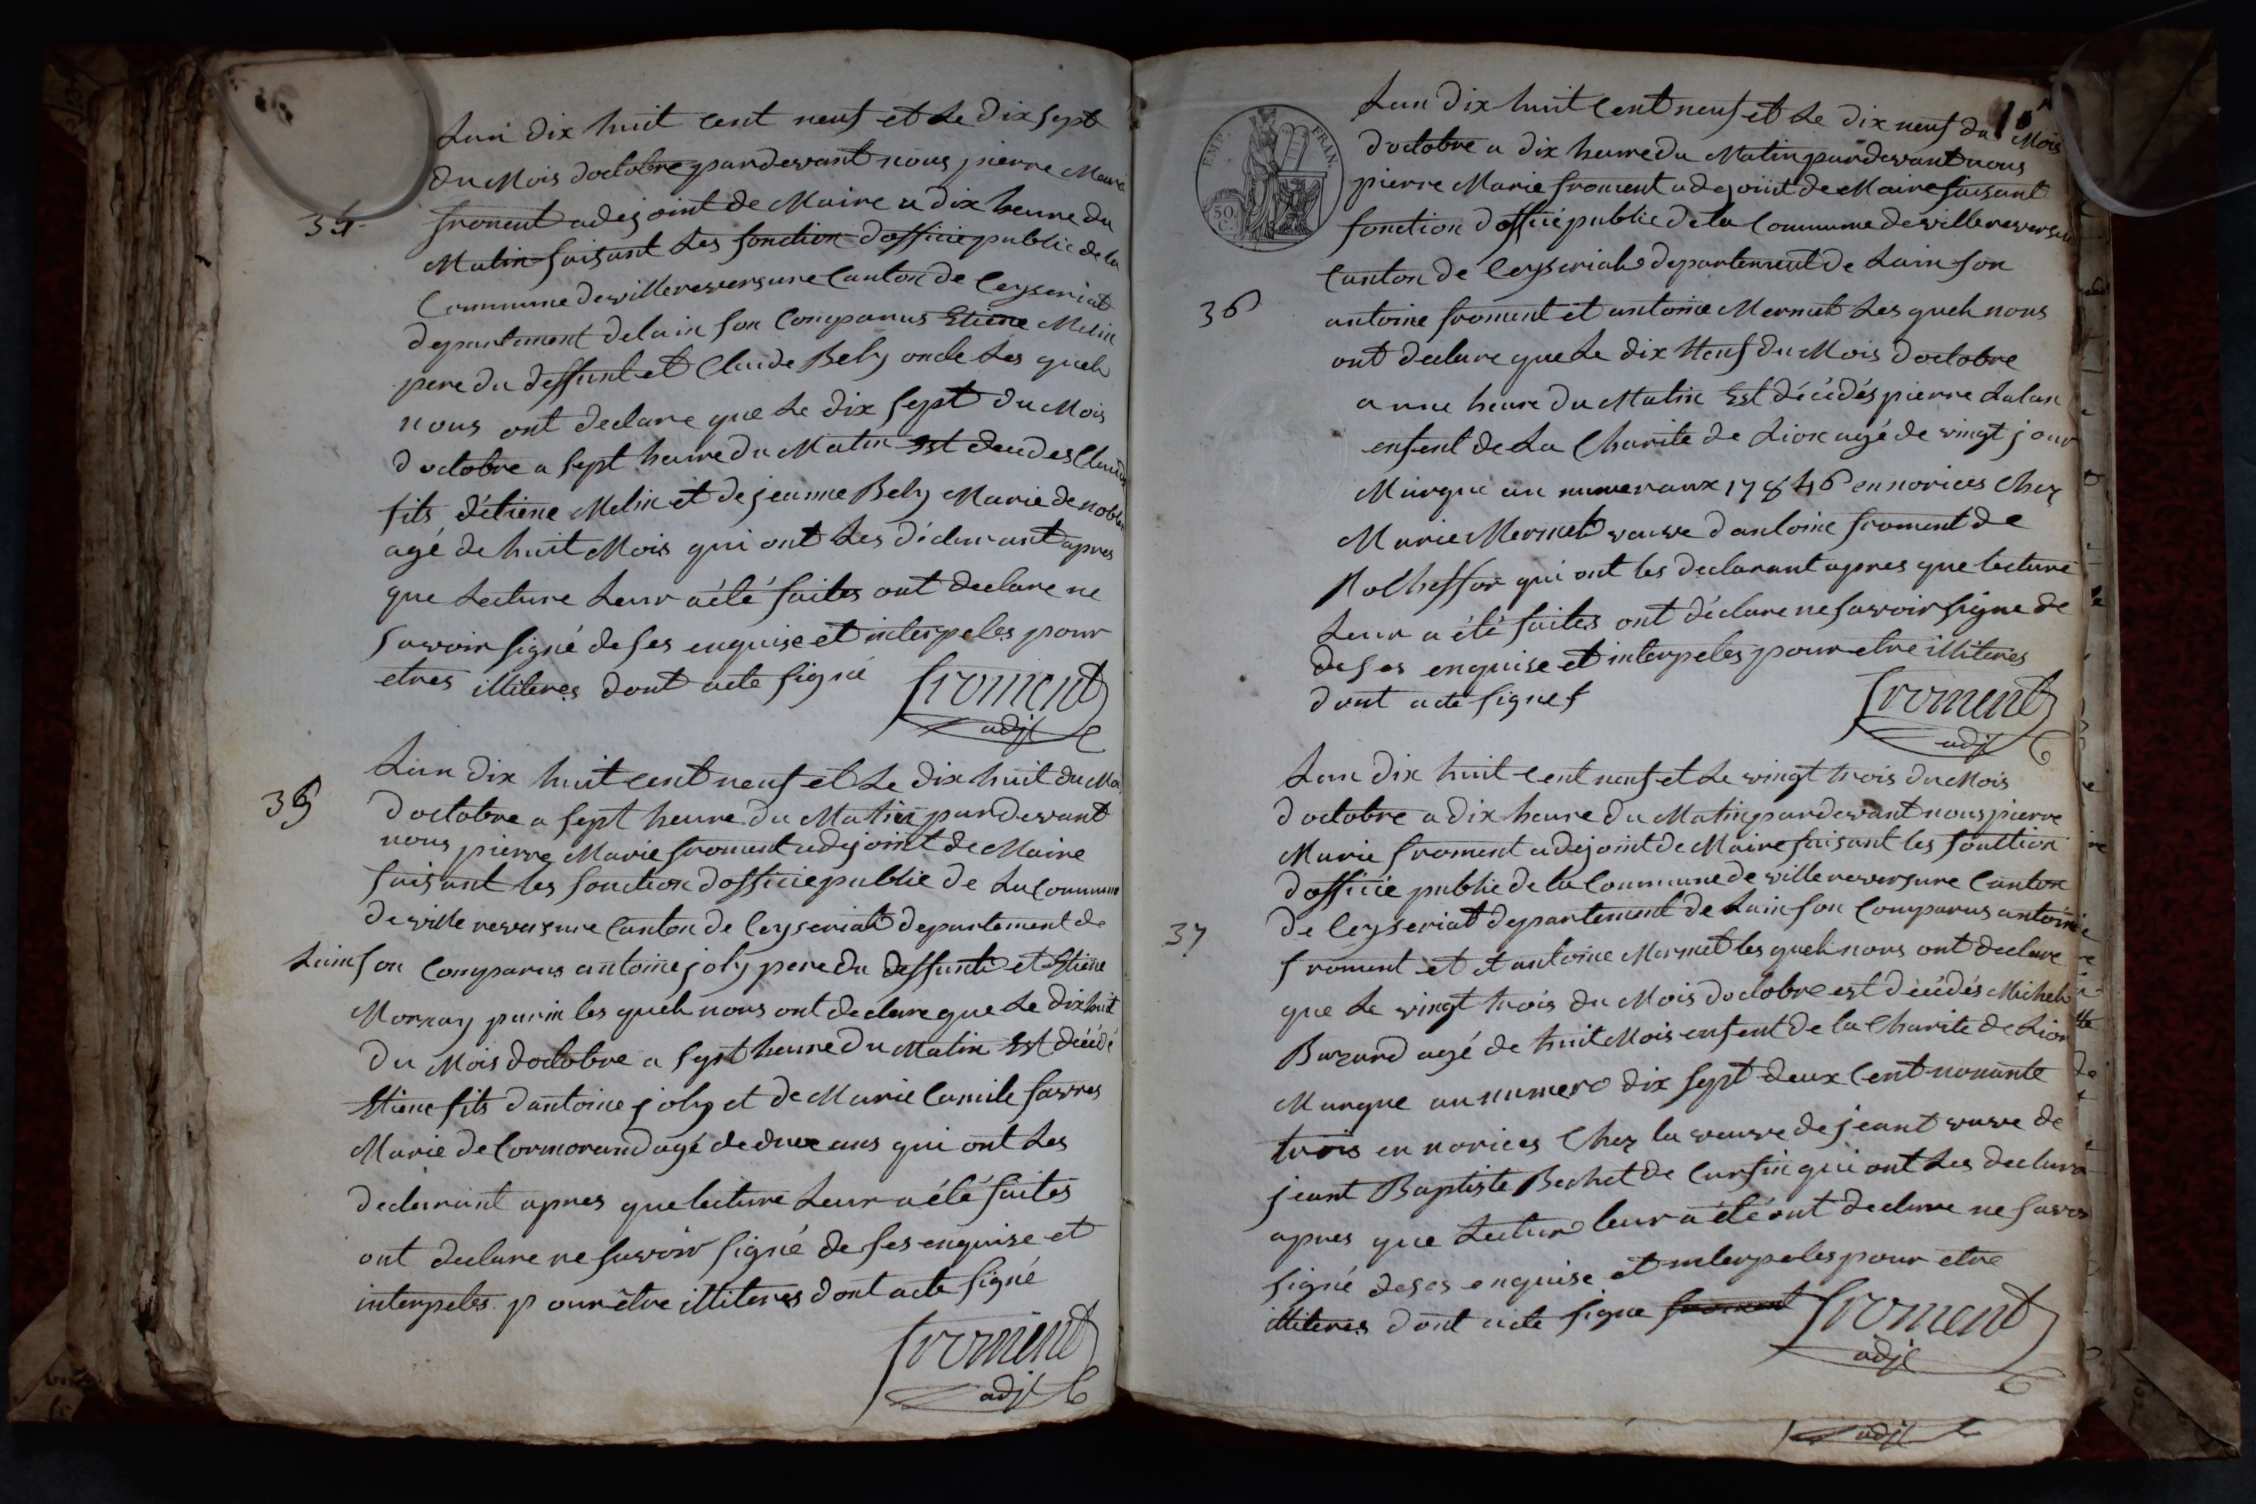 Lan dix huit cent neuf et Le dix sept
du Mois doctobre pardevant nous pierre Marie
froment adejoint de Maire a dix heure du
34
Matin faisant Les fonction dofficie public de la
Commune de villereversure Canton de Ceyseriat
departement delain son Comparus Etiene Melin
pere du deffunt et Claude Bely oncle Les quels
nous ont declare que Le dix sept du Mois
doctobre a sept heure du Matin Est decedes Claude
fils détiene Melin et de jeanne Bely Marie de noblens
agé de huit Mois qui ont Les déclarant apres
que Lecture Leur a été faites ont declare ne
savoir signé de ses enquise et interpeles pour
etres illiteres dont acte signé
froment
adjt
Lan dix huit cent neuf et Le dix huit du Moi
doctobre a sept heure du Matin pardevant
35
nous pierre Marie froment adejoint de Maire
faisant les fonction dofficie public de La Commune
de villereversure Canton de Ceyseriat departement de
Lain son Comparus antoine joly pere du deffunt et Etiene
Morray parin les quels nous ont declare que Le dix huit
du Mois doctobre a sept heure du Matin Est décédé
Etiene fils dantoine joly et de Marie Camile favres
Marie de Cormorand agé de duex ans qui ont Les
declarant apres que lecture Leur a été faites
ont declare ne savoir signé de ses enquise et
interpeles pour être illiteres dont acte signé
froment
adjt
EMP. FRAN.
50. C.
Lan dix huit Cent neuf et Le dix neuf du Mois
doctobre a dix heure du Matin pardevant nous
pierre Marie froment adejoint de Maire faisant
fonction dofficié public de la Commune de villereversure
Canton de Ceyseriat departement de Lain son
36
antoine froment et antoine Mermet Les quels nous
ont declare que Le dix Neuf du Mois doctobre
a une heure du Matin Est décédés pierre Lalan
enfent de La Charite de Lion agé de vingt jour
Marque au numeraux 17846 en norices Chez
Marie Mermet veuve dantoine froment de
Rolheffor qui ont les declarant apres que lecture
Leur a été faites ont déclare ne savoir signe de
de ses enquise et interpeles pour etre illiteres
dont acte signes
froment
adjt
Lan dix huit Cent neuf et Le vingt trois du Mois
doctobre a dix heure du Matin pardevant nous pierre
Marie froment adejoint de Maire faisant les fonction
dofficie public de la Commune de villereversure Canton
de Ceyseriat departement de Lain son Comparus antoine
37
froment et antoine Mermet les quels nous ont declare
que Le vingt trois du Mois doctobre est décédés Michel
Buzard agé de huit Mois enfent de la Charite de Lion
Marque au numero dix sept deux Cent nonante
trois en norices Chez la veuve de jeant vuve de
jeant Baptiste Bechet de Cursin qui ont Les declara
apres que Lecture leur a été ont declare ne savoi
signé de ses enquise et interpeles pour etre
illiteres dont acte signe froment
froment
adjt
adjt